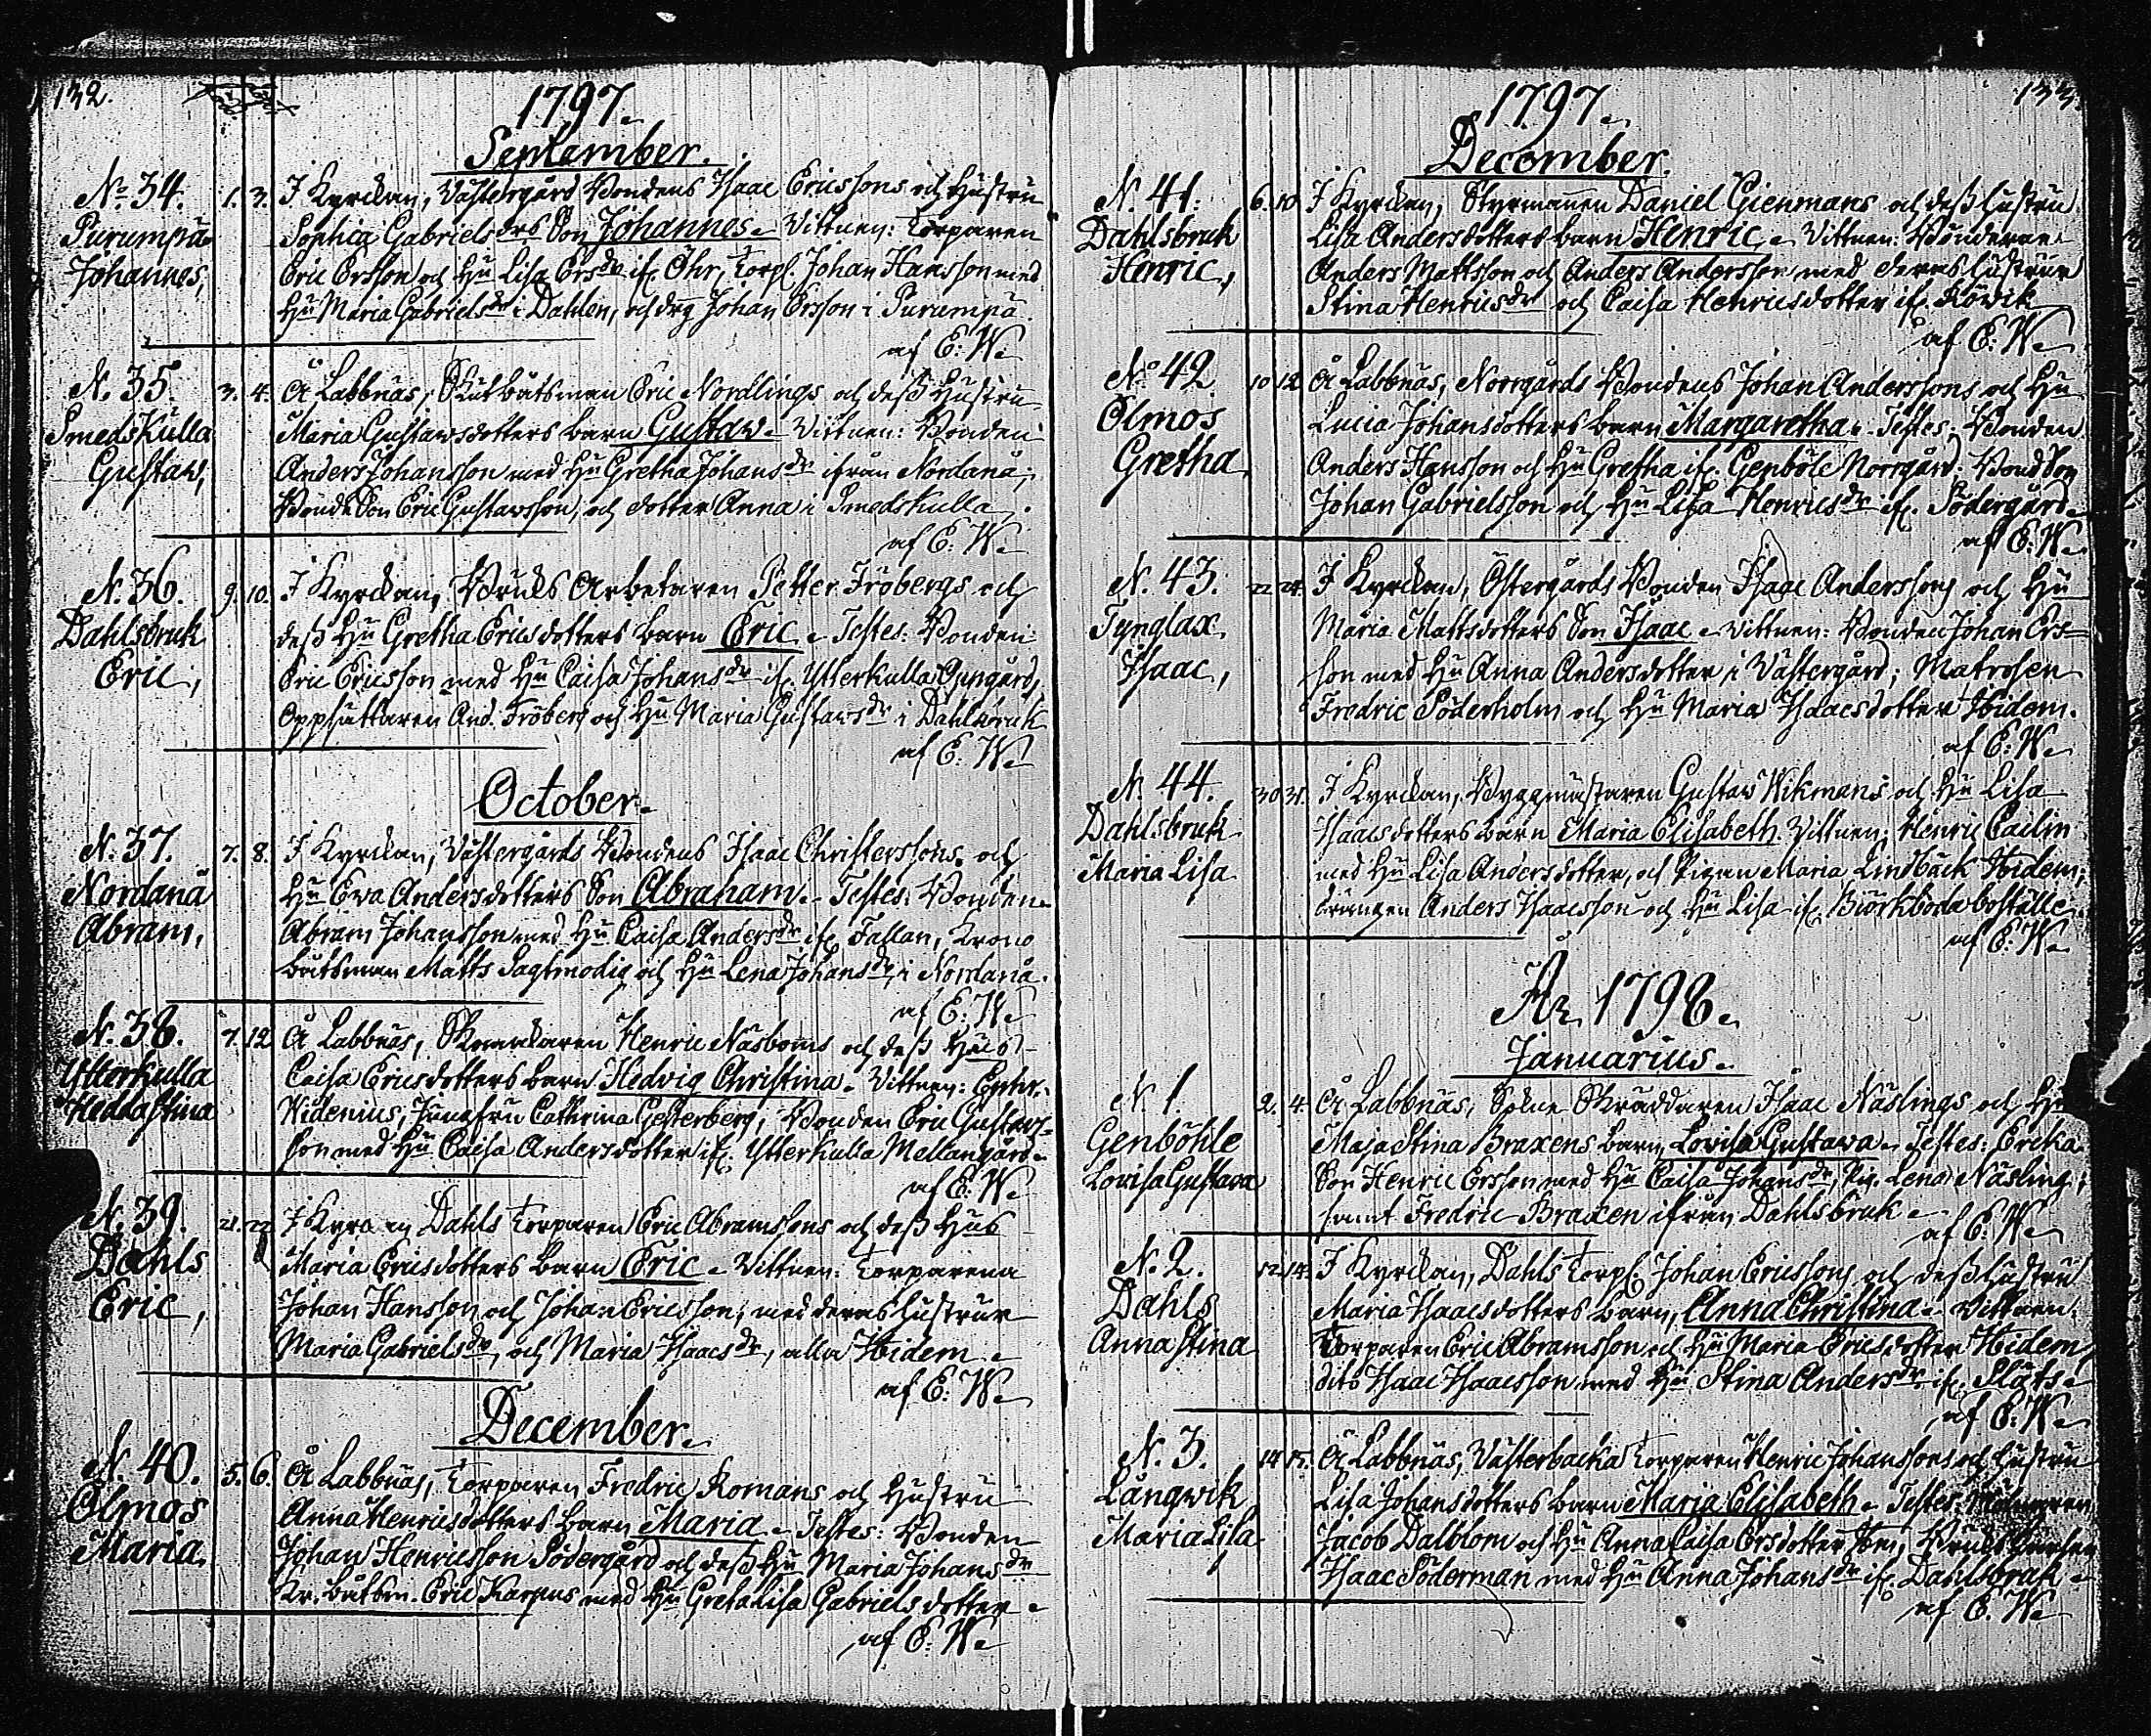 132.
1797.
September.
No 34.
Purumpä
Johannes,
1. 3. I Kyrckan, Wästergård Bondens Isaac Ericssons och Hustru
Sophia Gabriels drs Son Johannes. Vittnen: Torparen
Eric Ersson och Hu Lisa Ersdr if. Öhr, Torp. Johan Hansson med
Hu Maria Gabrielsdr i Dahlen, och drg Johan Ersson i Purumpä.
af E: W.
N. 35.
SmedsKulla
Gustav,
3. 4. Å Labbnäs, Båtsman Eric Nordlings och dess Hustru
Maria Gustavsdotters barn Gustav. Vittnen: Bonden
Anders Johansson med Hu Gretha Johansdr ifrån Nordanå,
Bonde Son Eric Gustavsson, och dotter Anna i SmedsKulla.
af E: W.
N. 36.
Dahlsbruk
Eric,
9. 10. I Kyrckan, Bruks Arbetaren Petter Fröbergs och
dess Hu Gretha Ericsdotters barn Eric. Testes: Bonden
Eric Ericsson med Hu Caisa Johansdr if. Ytterkulla Nygård,
Oppsättaren And. Fröberg och Hu Maria Gustavsdr i Dahlsbruk
af E: W.
October.
N. 37.
Nordanå
Abram,
7. 8. I Kyrckan, Wästergårds Bondens Isaac Christerssons och
Hu Ewa Andersdotters Son Abraham. Testes: Bonden
Abram Johansson med Hu Caisa Andersdr if. Fallan, Krono
båtsman Matts Sagtmodig och Hu Lena Johansdr, i Nordanå.
af E: W.
N. 38.
Ytterkulla
Hedda Stina
7. 12 Å Labbnäs, Skräddaren Henric Näsboms och dess Hus
Caisa Ericsdotters barn Hedvig Christina. Vittnen:
Widenius, Jungfru Catherina Gesterberg, Bonden Eric Gustavs-
son med Hu Caisa Andersdotter if. Ytterkulla Mellangård.
af E: W.
N. 39.
Dahls
Eric,
21. 22 I Kyrckan Dahls Torparen Eric Abramssons och dess Hus
Maria Ericsdotters barn Eric. Vittnen: Torparena
Johan Hansson och Johan Ericsson, med deras hustrur
Maria Gabrielsdr, och Maria Isaacsdr, alla Ibidem.
af E: W.
December.
N. 40.
Ölmos
Maria.
5. 6. Å Labbnäs, Torparen Fredric Romans och Hustru
Anna Henricsdotters barn Maria. Testes: Bonden
Johan Henricsson Södergård och dess Hu Maria Johansdr
Kr. båtsm. Eric Karpus med Hu Greta Lisa Gabriels dotter.
af E: W.
133
1797.
December.
N. 41.
Dahlsbruk
Henric,
6. 10 I Kyrckan, Styrmannen Daniel Gienmans och dess hustru
Lisa Andersdotters barn Henric. Vittnen: Bönderne
Anders Mattsson och Anders Andersson med deras hustrur
Stina Henricsdr och Caisa Henricsdotter if. Röwik
af E: W.
No 42
Ölmos
Gretha
10 12 Å Labbnäs, Norrgårds Bondens Johan Anderssons och Hu
Lucia Johansdotters barn Margaretha. Testes: Bonden
Anders Hansson och Hu Gretha if. Genböle Norrgård. Bond Son
Johan Gabrielsson och Hu Lisa Henricsdr if. Södergård.
af E: W.
N. 43.
Tynglax
Isaac,
22 24. I Kyrckan, Östergårds Bonden Isaac Anderssons och Hu
Maria Mattsdotters Son Isaac. Vittnen: Bonden Johan Ers-
son med Hu Anna Andersdotter i Wästergård; Matrosen
Fredric Söderholm och Hu Maria Isaacsdotter Ibidem.
af E: W.
N. 44.
Dahlsbruk
Maria Lisa
30 31. I Kyrckan, Byggmästaren Gustav Wikmans och Hu Lisa
Isaacsdotters barn Maria Elisabeth. Vittnen: Henric Cailin
med Hu Lisa Andersdotter, och Pigan Maria Lindbäck Ibidem;
drängen Anders Isaacsson och Hu Lisa if. Biörkboda boställe.
af E: W.
År 1798.
Januarius.
N. 1.
Genböhle
Lovisa Gustava
2. 4. Å Labbnäs, Sokne Skräddaren Isaac Näslings och Hu
Maja Stina Braxens barn Lovisa Gustava. Testes:
Son Henric Ersson med Hu Caisa Johansdr, Pig. Lena Näsling,
samt Fredric Braxen ifrån Dahlsbruk.
af E: W.
N. 2.
Dahls
Anna Stina
12. 14. I Kyrckan, Dahls Torp. Johan Ericssons och dess hustru
Maria Isaacsdotters barn, Anna Christina. Vittnen:
Torparen Eric Abramsson och Hu Maria Ericsdotter Ibidem,
dito Isaac Isaacsson med Hu Stina Andersdr if. Släts.
af E: W.
N. 3.
Långwik
Maria Lisa
14 15. Å Labbnäs, Wästerbacka Torparen Henric Johanssons och hustru
Lisa Johansdotters barn Maria Elisabeth. Testes: Mölnaren
Jacob Dalblom och Hu Anna Caisa Ersdotter Ibm, Bruks
Isaac Söderman med Hu Anna Johansdr if. Dahlsbruk.
af E: W.